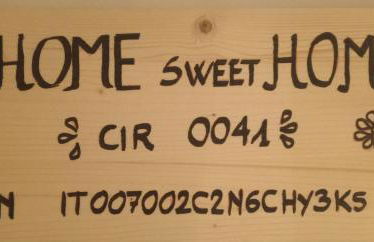 HOME SWEET HOM
CIR 0041
N IT007002C2N6CHY3K5